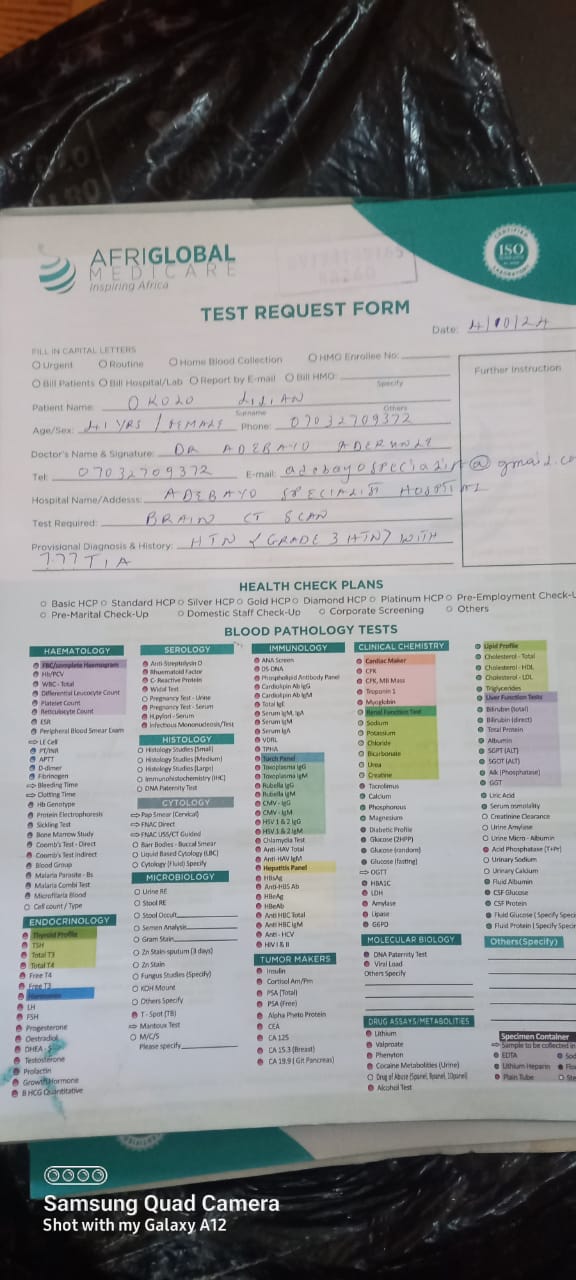 AFRIGLOBAL
MEDICARE
Inspiring Africa
CERTIFIED
ISO
TEST REQUEST FORM
Date: 4/10/24
FILL IN CAPITAL LETTERS
Urgent Routine Home Blood Collection HMO Enrollee No:
Bill Patients Bill Hospital/Lab Report by E-mail Bill HMO:
Specify
Further Instruction
Patient Name: OKOLO LILIAN
Surname Others
Age/Sex: 41 YRS / FEMALE Phone: 07032709372
Doctor's Name & Signature: DR ADEBAYO
Tel: 07032709372 E-mail: @gmail.co
Hospital Name/Addesss: ADEBAYO SPECIALIST HOSPITAL
Test Required: BRAIN CT SCAN
Provisional Diagnosis & History: HTN (GRADE 3 HTN) WITH
??? TIA
HEALTH CHECK PLANS
Basic HCP Standard HCP Silver HCP Gold HCP Diamond HCP Platinum HCP Pre-Employment Check-U
Pre-Marital Check-Up Domestic Staff Check-Up Corporate Screening Others
BLOOD PATHOLOGY TESTS
HAEMATOLOGY
FBC/complete Haemogram
Hb/PCV
WBC - Total
Differential Leucocyte Count
Platelet Count
Reticulocyte Count
ESR
Peripheral Blood Smear Exam
LE Cell
PT/INR
APTT
D-dimer
Fibrinogen
Bleeding Time
Clotting Time
Hb Genotype
Protein Electrophoresis
Sickling Test
Bone Marrow Study
Coomb's Test - Direct
Coomb's Test Indirect
Blood Group
Malaria Parasite - Bs
Malaria Combi Test
Microfilaria Blood
Cell count / Type
ENDOCRINOLOGY
Thyroid Profile
TSH
Total T3
Total T4
Free T4
Free T3
LH
FSH
Progesterone
Oestradiol
DHEA - S
Testosterone
Prolactin
Growth Hormone
B HCG Quantitative
SEROLOGY
Anti-Streptolysin O
Rheumatoid Factor
C- Reactive Protein
Widal Test
Pregnancy Test - Urine
Pregnancy Test - Serum
H.pylori - Serum
Infectious Mononucleosis/Test
HISTOLOGY
Histology Studies (Small)
Histology Studies (Medium)
Histology Studies (Large)
Immunohistochemistry (IHC)
DNA Paternity Test
CYTOLOGY
Pap Smear (Cervical)
FNAC Direct
FNAC USS/CT Guided
Barr Bodies - Buccal Smear
Liquid Based Cytology (LBC)
Cytology (Fluid) Specify
MICROBIOLOGY
Urine RE
Stool RE
Stool Occult
Semen Analysis
Gram Stain
Zn Stain sputum (3 days)
Zn Stain
Fungus Studies (Specify)
KOH Mount
Others Specify
T - Spot (TB)
Mantoux Test
M/C/S
Please specify
IMMUNOLOGY
ANA Screen
DS-DNA
Phospholipid Antibody Panel
Cardiolipin Ab IgG
Cardiolipin Ab IgM
Total IgE
Serum IgM, IgA
Serum IgM
Serum IgA
VDRL
TPHA
Torch Panel
Toxoplasma IgG
Toxoplasma IgM
Rubella IgG
Rubella IgM
CMV - IgG
CMV - IgM
HSV 1 & 2 IgG
HSV 1 & 2 IgM
Chlamydia Test
Anti-HAV Total
Anti-HAV IgM
Hepatitis Panel
HBsAg
Anti-HBS Ab
HBeAg
HBeAb
Anti HBC Total
Anti HBC IgM
Anti - HCV
HIV I & II
TUMOR MAKERS
Insulin
Cortisol Am/Pm
PSA (Total)
PSA (Free)
Alpha Pheto Protein
CEA
CA 125
CA 15.3 (Breast)
CA 19.9 (Git Pancreas)
CLINICAL CHEMISTRY
Cardiac Maker
CPK
CPK, MB Mass
Troponin 1
Myoglobin
Renal Function Test
Sodium
Potassium
Chloride
Bicarbonate
Urea
Creatine
Tacrolimus
Calcium
Phosphorous
Magnesium
Diabetic Profile
Glucose (2HPP)
Glucose (random)
Glucose (fasting)
OGTT
HBA1C
LDH
Amylase
Lipase
G6PD
MOLECULAR BIOLOGY
DNA Paternity Test
Viral Load
Others Specify
DRUG ASSAYS/METABOLITIES
Lithium
Valproate
Phenyton
Cocaine Metabolities (Urine)
Drug of Abuse (5panel, 8panel, 10panel)
Alcohol Test
Lipid Profile
Cholesterol - Total
Cholesterol - HDL
Cholesterol - LDL
Triglycerides
Liver Function Tests
Bilirubin (total)
Bilirubin (direct)
Total Protein
Albumin
SGPT (ALT)
SGOT (ALT)
Alk (Phosphatase)
GGT
Uric Acid
Serum osmolality
Creatinine Clearance
Urine Amylase
Urine Micro - Albumin
Acid Phosphatase (T+Pr)
Urinary Sodium
Urinary Calcium
Fluid Albumin
CSF Glucose
CSF Protein
Fluid Glucose ( Specify Speci
Fluid Protein ( Specify Speci
Others(Specify)
Specimen Container
Sample to be collected in
EDTA Sod
Lithium Heparin Flo
Plain Tube Ste
Samsung Quad Camera
Shot with my Galaxy A12